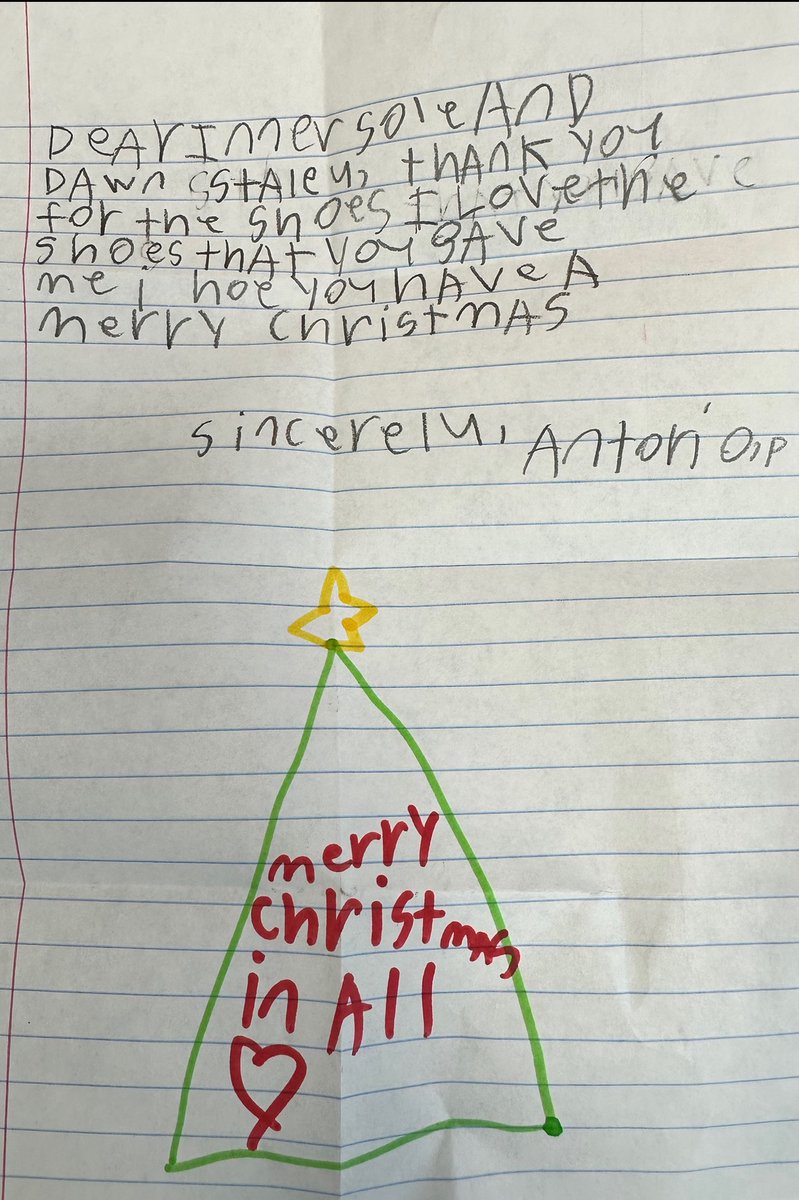 DeAr Inner sole AnD
DAwn SStAleu, thAnk you
for the shoes I Love the
shoes thAt you gAve
me i hoe you hAve A
merry christmAS
sincerelu, Antonio, p
merry
christmas
in All